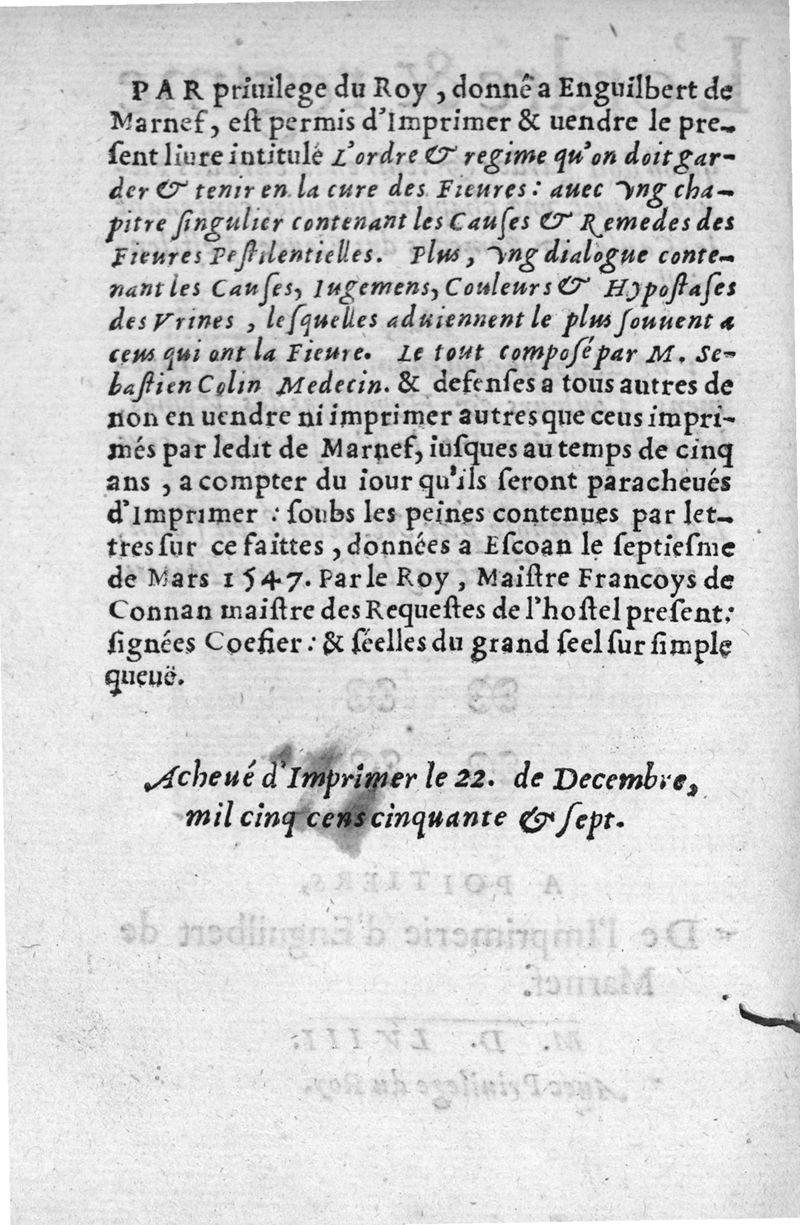 PAR priuilege du Roy, donné a Enguilbert de
Marnef, eſt permis d'Imprimer & uendre le pre-
ſent liure intitulé L'ordre & regime qu'on doit gar-
der & tenir en la cure des Fieures: auec vng cha-
pitre ſingulier contenant les Cauſes & Remedes des
Fieures Peſtilentielles. Plus, vng dialogue conte-
nant les Cauſes, Iugemens, Couleurs & Hypoſtaſes
des Vrines, leſquelles aduiennent le plus ſouuent a
ceus qui ont la Fieure. Le tout compoſé par M. Se-
baſtien Colin Medecin. & defenſes a tous autres de
non en uendre ni imprimer autres que ceus impri-
més par ledit de Marnef, iuſques au temps de cinq
ans, a compter du iour qu'ils ſeront paracheués
d'Imprimer: ſoubs les peines contenues par let-
tres ſur ce faittes, données a Eſcoan le ſeptieſme
de Mars 1547. Par le Roy, Maiſtre Francoys de
Connan maiſtre des Requeſtes de l'hoſtel preſent:
ſignées Coefier: & ſéelles du grand ſeel ſur ſimple
queuë.
Acheué d'Imprimer le 22. de Decembre,
mil cinq cens cinquante & ſept.
A POITIERS,
De l'Imprimerie d'Enguilbert de
Marnef.
M. D. LVIII.
Auec Priuilege du Roy.